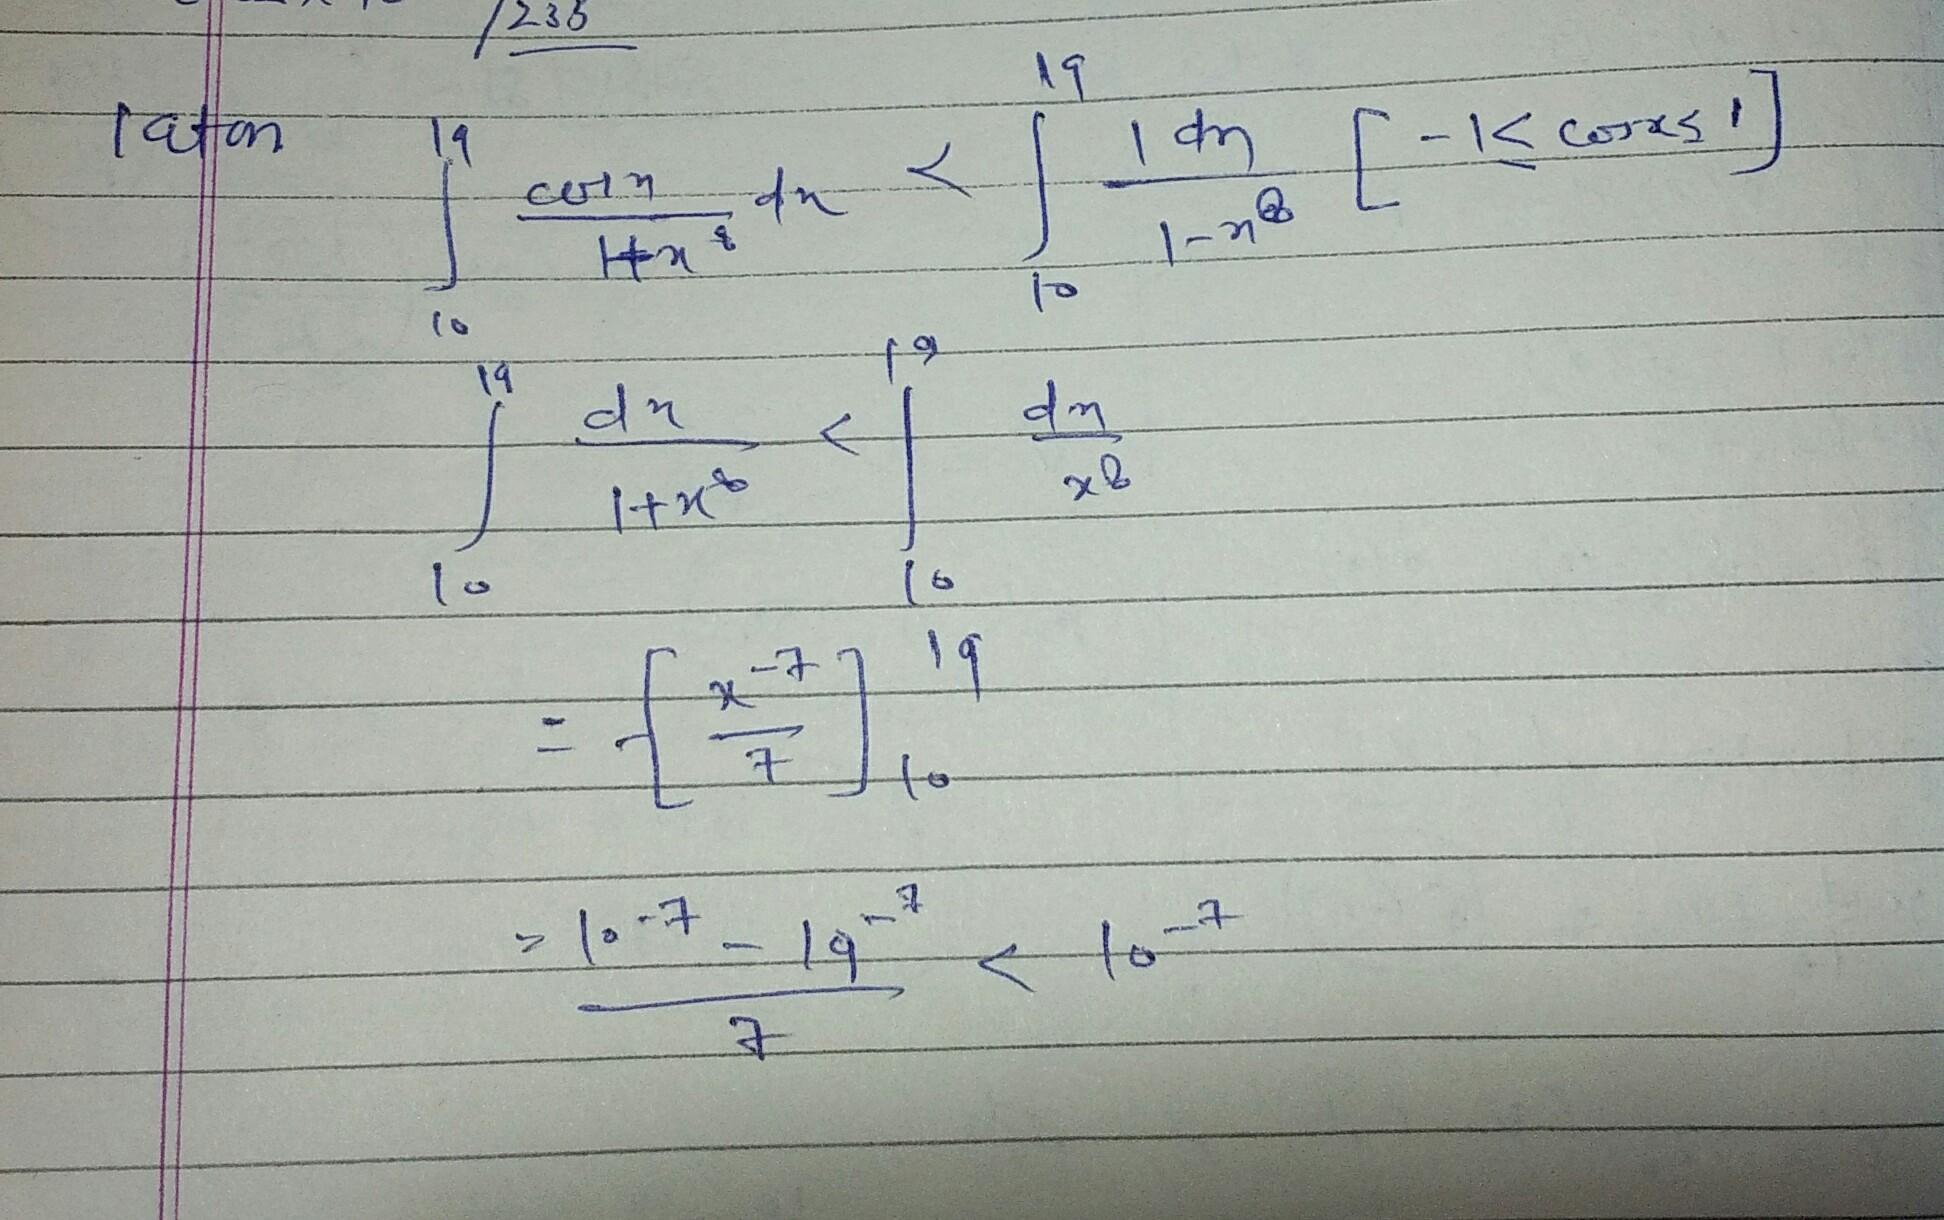 /235
∫₁₀¹⁹ cosx/(1+x⁸) dx < ∫₁₀¹⁹ 1 dx/(1-x⁸) [-1≤ cosx≤ 1]
∫₁₀¹⁹ dx/(1+x⁸) < ∫₁₀¹⁹ dx/x⁸
= -[x⁻⁷/7]₁₀¹⁹
= (10⁻⁷ - 19⁻⁷)/7 < 10⁻⁷